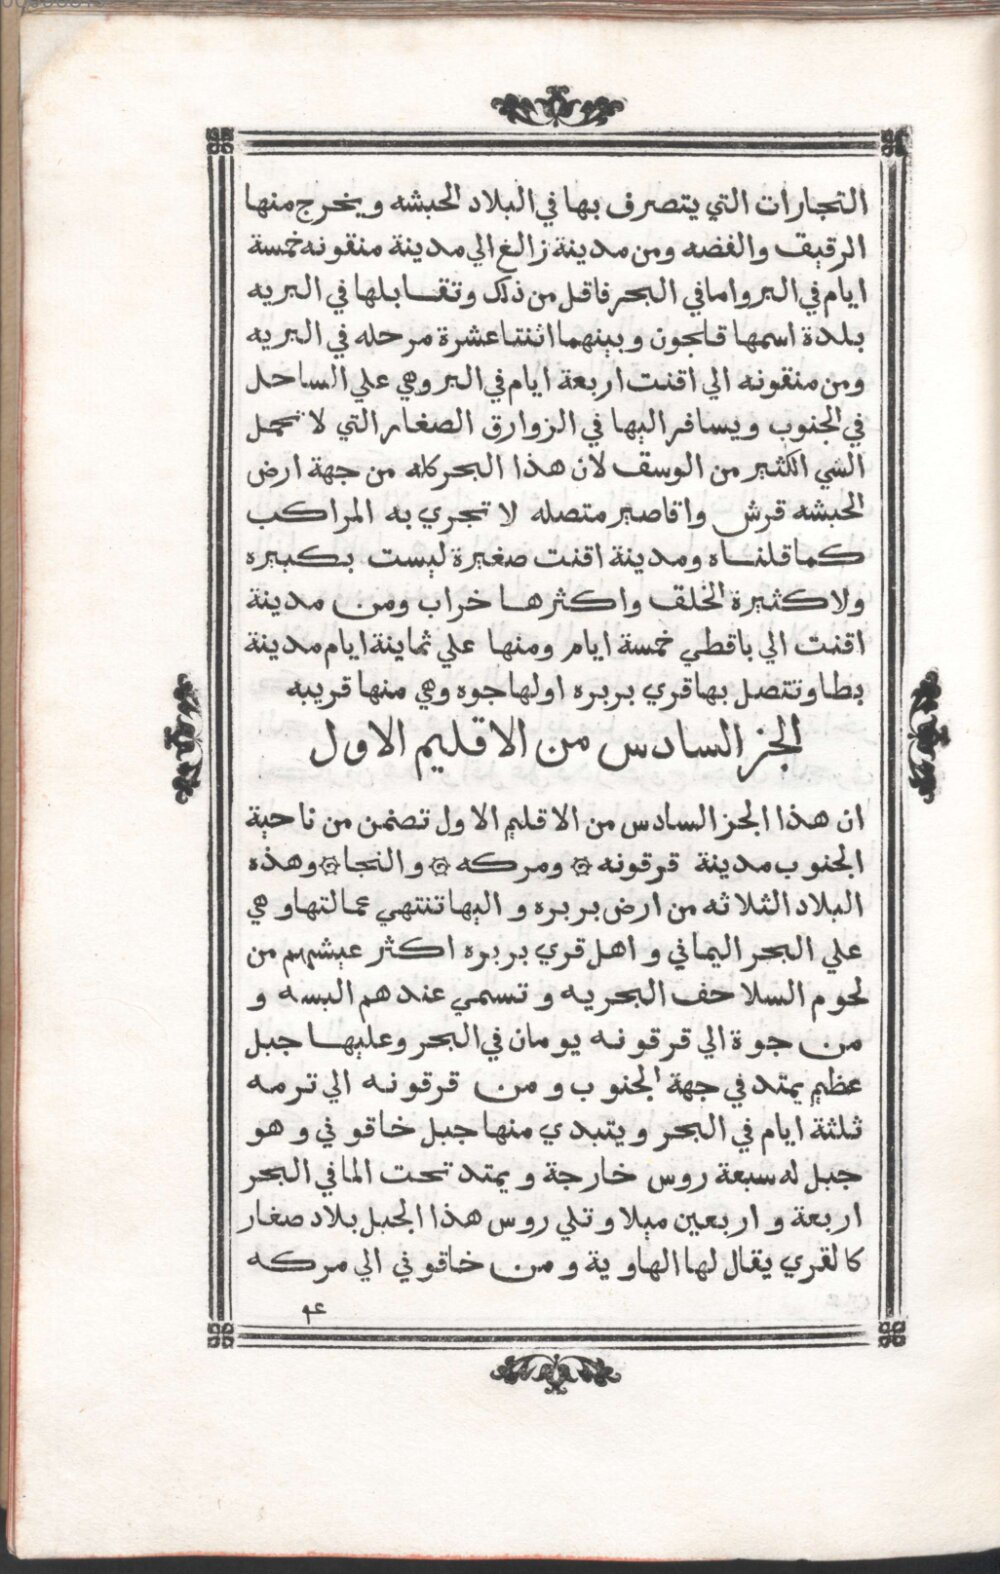 التجارات التي يتصرف بها في البلاد الحبشه ويخرج منها
الرقيق والفضه ومن مدينة زالغ الي مدينة منقونه خمسة
ايام في البر واما في البحر فاقل من ذلك وتقابلها في البريه
بلدة اسمها قلجون وبينهما اثنتا عشرة مرحله في البريه
ومن منقونه الي اقنت اربعة ايام في البر وهي علي الساحل
في الجنوب ويسافر اليها في الزوارق الصغار التي لا تحمل
الشي الكثير من الوسق لان هذا البحر كله من جهة ارض
الحبشه قرش واقاصير متصله لا تجري به المراكب
كما قلناه ومدينة اقنت صغيرة ليست بكبيره
ولا كثيرة الخلق واكثرها خراب ومن مدينة
اقنت الي باقطي خمسة ايام ومنها علي ثماينة ايام مدينة
بطا وتتصل بها قري بربره اولها جوه وهي منها قريبه
الجز السادس من الاقليم الاول
ان هذا الجز السادس من الاقليم الاول تضمن من ناحية
الجنوب مدينة قرقونه ۞ ومركه ۞ والنجا ۞ وهذه
البلاد الثلاثه من ارض بربره واليها تنتهي عمالتها وهي
علي البحر اليماني واهل قري بربره اكثر عيشهم من
لحوم السلاحف البحريه وتسمي عندهم البسه و
من جوة الي قرقونه يومان في البحر وعليها جبل
عظيم يمتد في جهة الجنوب ومن قرقونه الي ترمه
ثلثة ايام في البحر ويتبدي منها جبل خاقوني وهو
جبل له سبعة روس خارجة ويمتد تحت الما في البحر
اربعة واربعين ميلا وتلي روس هذا الجبل بلاد صغار
كالقري يقال لها الهاوية ومن خاقوني الي مركه